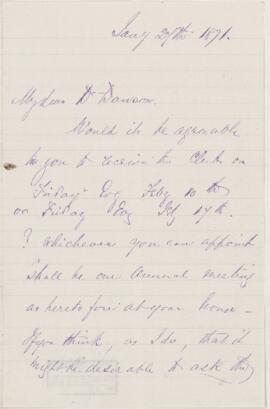 Jany 27th 1871.
My dear Dr Dawson.
Would it be agreeable
to you to receive the Club on
Friday Evg Feby 10th
or Friday Evg Feb 17th.
? whichever you can appoint
shall be our Annual meeting
as heretofore at your house -
If you think, as I do, that it
might be desirable to ask the